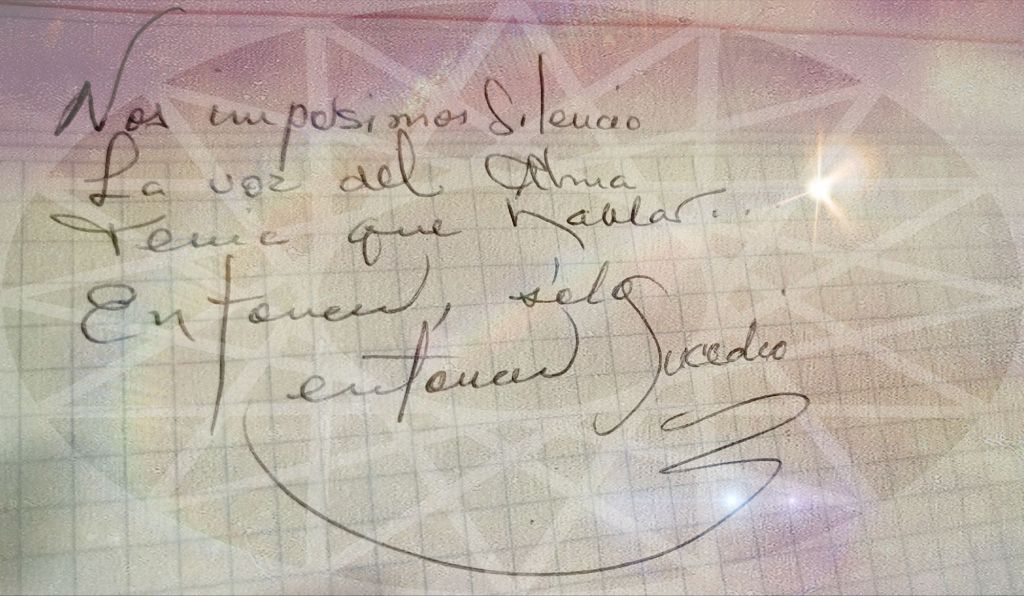 Nos impusimos Silencio
La voz del Alma
Tenía que hablar...
Entonces, sólo
entonces Sucedio